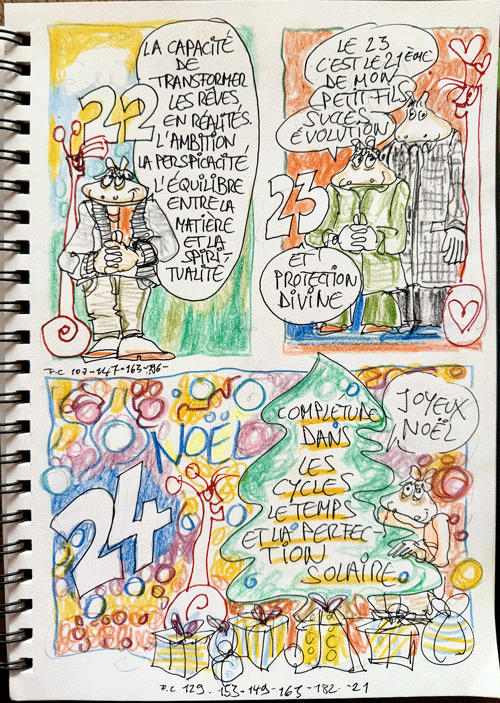 LA CAPACITÉ
DE
TRANSFORMER
LES RÊVES
EN RÉALITÉS
L'AMBITION
LA PERSPICACITÉ
L'ÉQUILIBRE
ENTRE LA
MATIÈRE
ET LA
SPIRI-
TUALITÉ
22
LE 23
C'EST LE 21ÈME
DE MON
PETIT FILS
SUCCÈS
ÉVOLUTION
23
ET
PROTECTION
DIVINE
F.C 107-147-163-196-
NOËL
24
COMPLÉTUDE
DANS
LES
CYCLES
LE TEMPS
ET LA PERFEC
TION
SOLAIRE
JOYEUX
NOËL
F.C 129-153-149-163-182-21